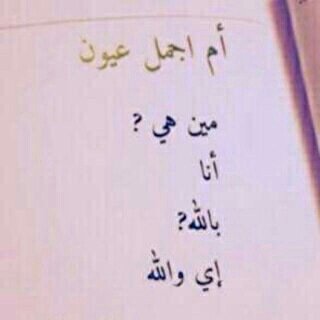 أم اجمل عيون
مين هي ?
أنا
بالله?
إي والله